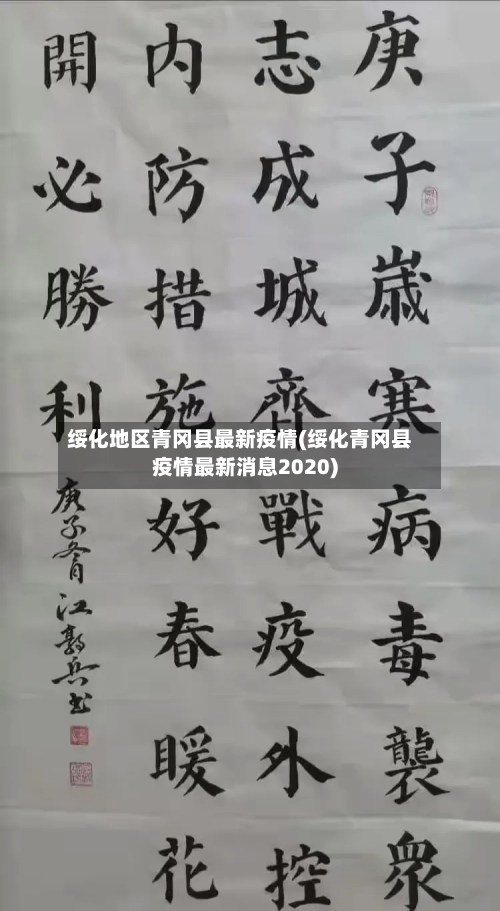 庚子歲寒病毒襲眾
志成城齊戰疫外控
内防措施好春暖花
開必勝利
庚子冬月江彭兵书
绥化地区青冈县最新疫情(绥化青冈县
疫情最新消息2020)